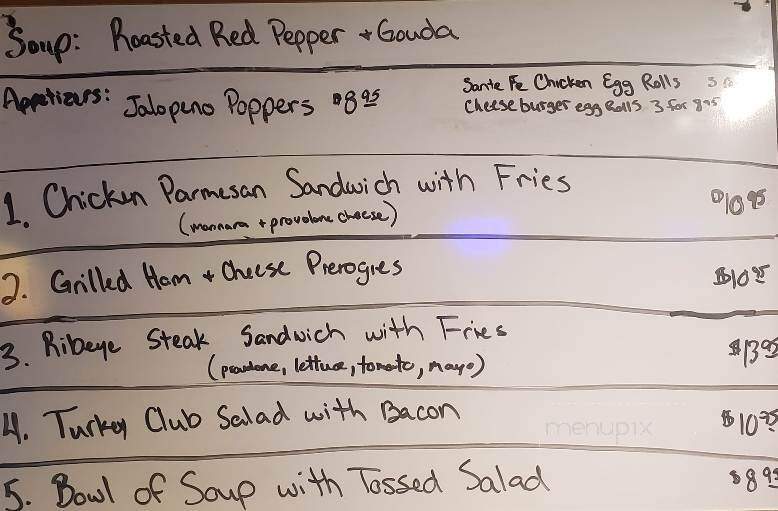 Soup: Roasted Red Pepper + Gouda
Appetizers: Jalopeno Poppers $8.95
Sante Fe Chicken Egg Rolls 3
Cheeseburger egg Rolls 3 for 8.95
1. Chicken Parmesan Sandwich with Fries $10.95
(marinara + provolone cheese)
2. Grilled Ham + Cheese Pierogies $10.95
3. Ribeye Steak Sandwich with Fries $13.95
(provolone, lettuce, tomato, mayo)
4. Turkey Club Salad with Bacon $10.95
menupix
5. Bowl of Soup with Tossed Salad $8.95